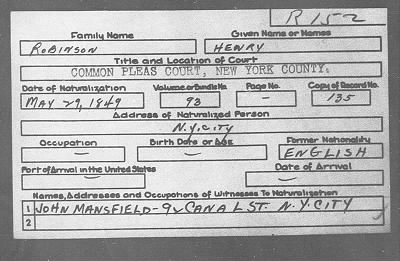 R 152
Family Name Given Name or Names
ROBINSON HENRY
Title and Location of Court
COMMON PLEAS COURT, NEW YORK COUNTY.
Date of Naturalization Volume or Bundle No. Page No. Copy of Record No.
MAY 29, 1849 93 — 135
Address of Naturalized Person
N.Y.CITY
Occupation Birth Date or Age Former Nationality
— — ENGLISH
Port of Arrival in the United States Date of Arrival
— —
Names, Addresses and Occupations of Witnesses To Naturalization
1 JOHN MANSFIELD - CANAL ST. N.Y.CITY
2